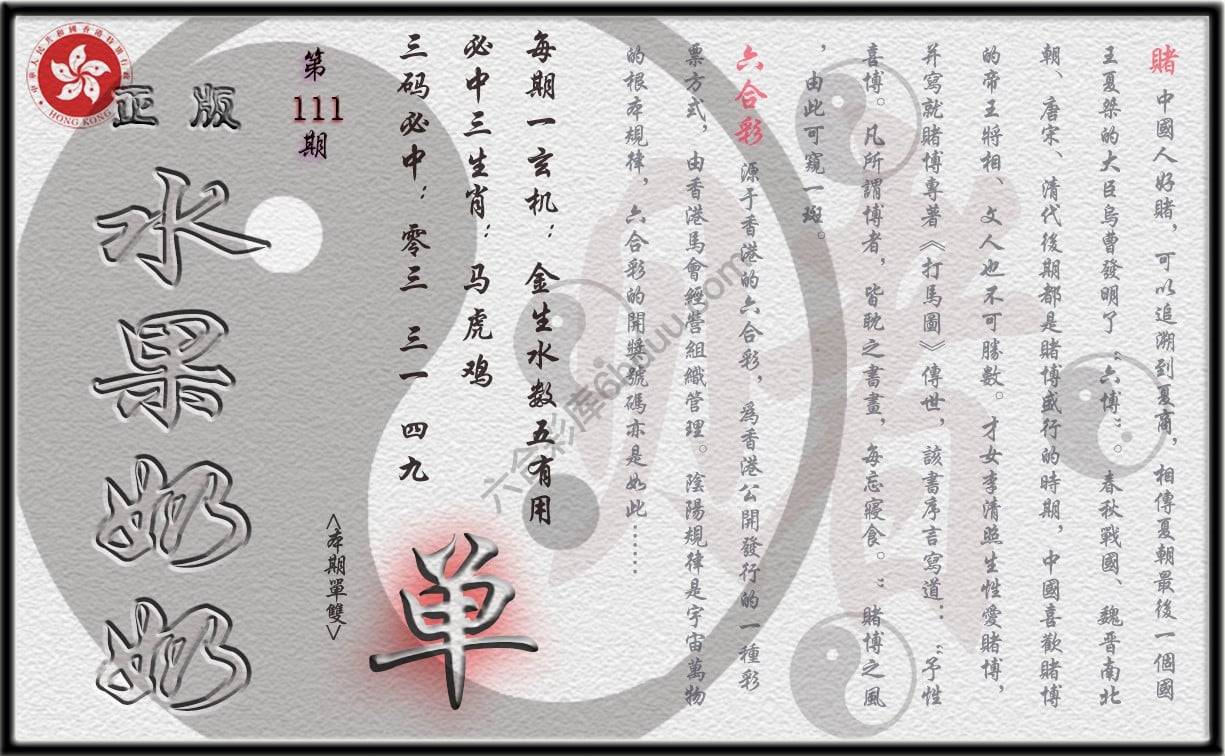 賭 中國人好賭，可以追溯到夏商，相傳夏朝最後一個國
王夏桀的大臣烏曹發明了“六博”。春秋戰國、魏晋南北
朝、唐宋、清代後期都是賭博盛行的時期，中國喜歡賭博
的帝王將相、文人也不可勝數。才女李清照生性愛賭博，
并寫就賭博專著《打馬圖》傳世，該書序言寫道：“予性
喜博。凡所謂博者，皆耽之書畫，每忘寢食。”賭博之風
，由此可窺一斑。
六合彩 源于香港的六合彩，爲香港公開發行的一種彩
票方式，由香港馬會經營組織管理。陰陽規律是宇宙萬物
的根本規律，六合彩的開獎號碼亦是如此……
每期一玄机：金生水数五有用
必中三生肖：马虎鸡
三码必中：零三 三一 四九
第111期
<本期單雙>
单
正版
水果奶奶
中華人民共和國香港特別行政區
HONG KONG
六合彩库6huuu.com